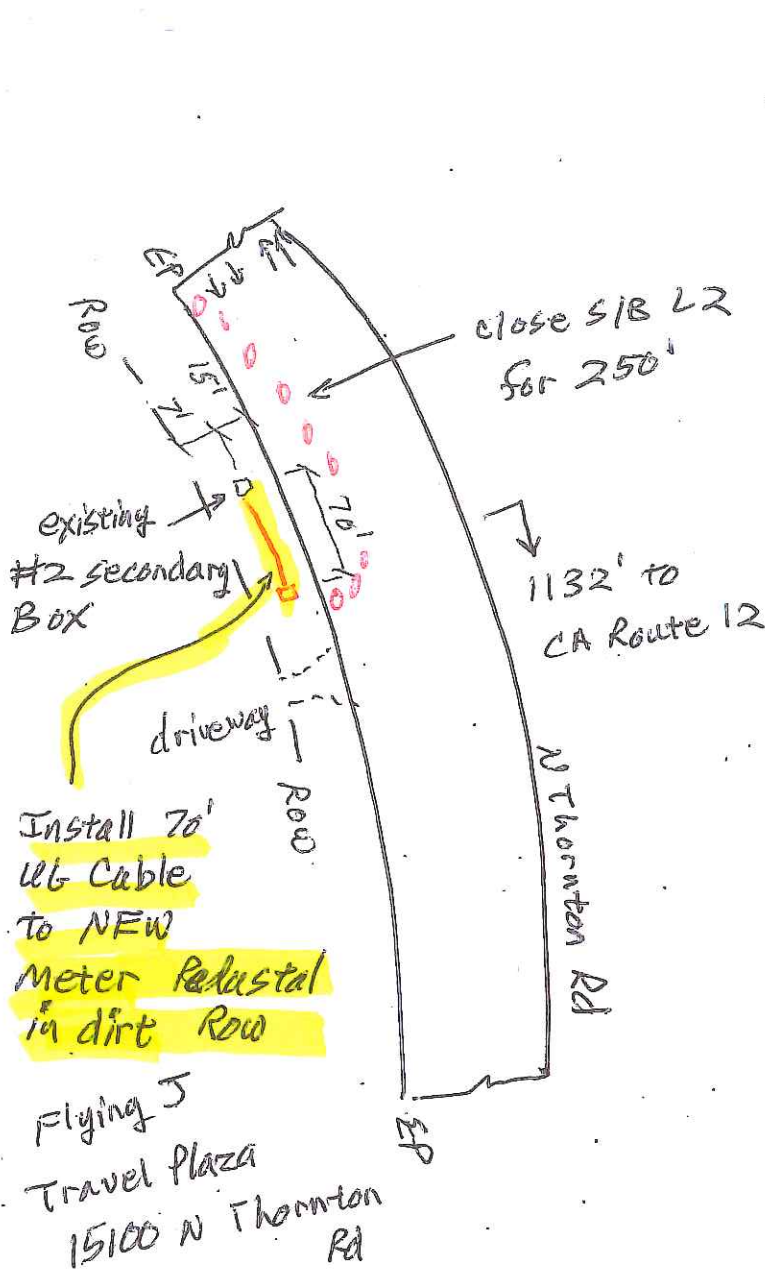 EP
Row
15'
7'
close S/B L2
for 250'
existing
#2 secondary
Box
70'
1132' to
CA Route 12
driveway
Row
N Thornton Rd
Install 70'
UG Cable
to NEW
Meter Pedastal
in dirt Row
EP
Flying J
Travel Plaza
15100 N Thornton
Rd